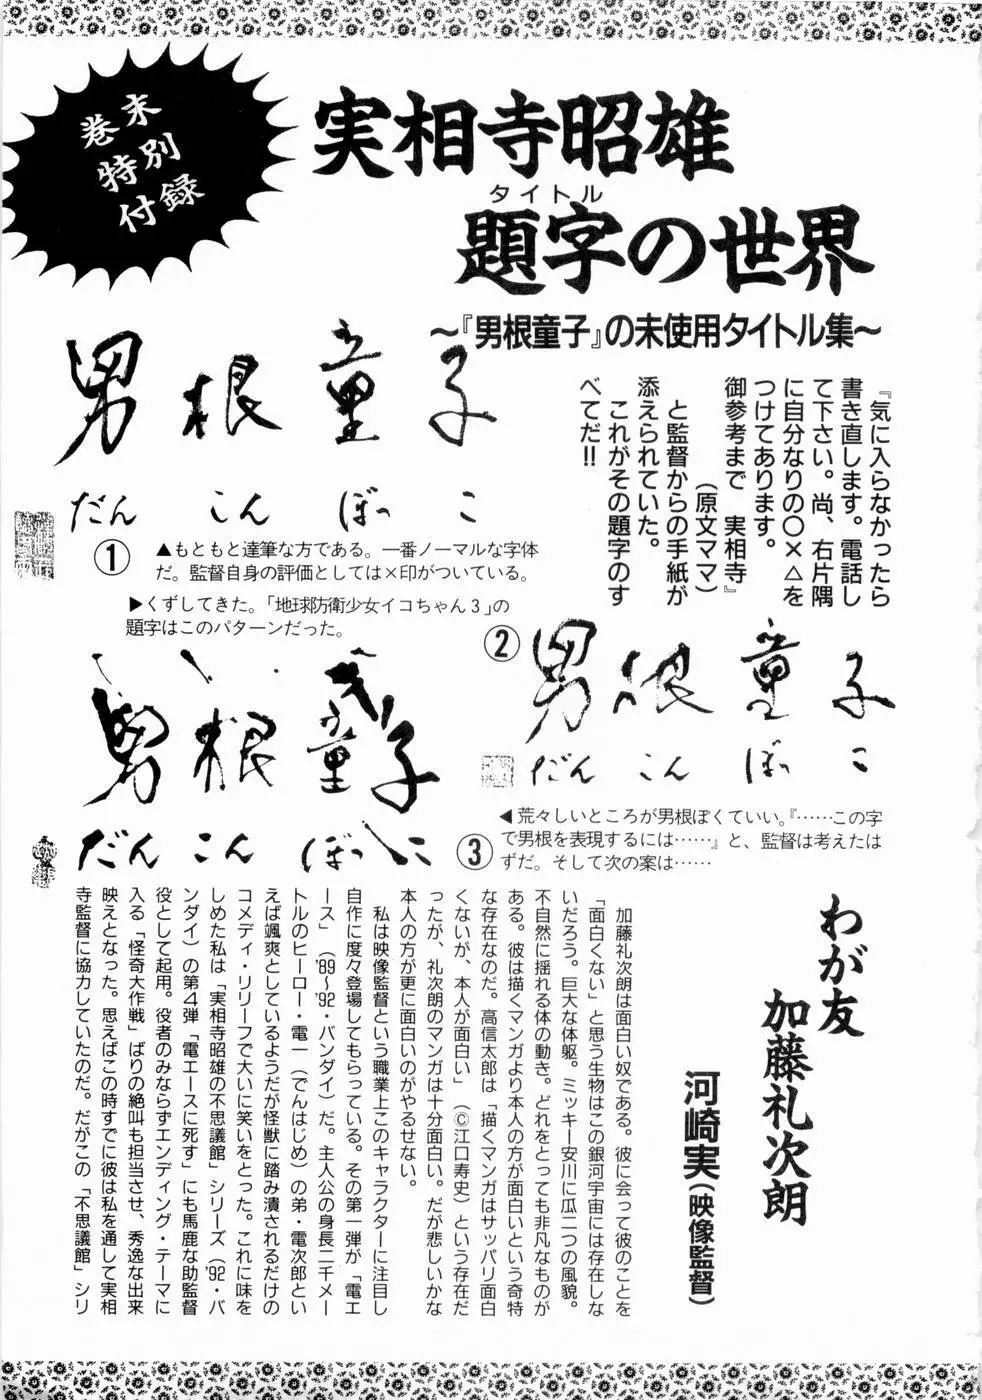 巻末
特別
付録
実相寺昭雄
タイトル
題字の世界
〜『男根童子』の未使用タイトル集〜
『気に入らなかったら
書き直します。電話し
て下さい。尚、右片隅
に自分なりの○×△を
つけてあります。
御参考まで　実相寺』
（原文ママ）
と監督からの手紙が
添えられていた。
これがその題字のす
べてだ!!
男根童子
だんこんぼっこ
①
▲もともと達筆な方である。一番ノーマルな字体
だ。監督自身の評価としては×印がついている。
▶くずしてきた。「地球防衛少女イコちゃん3」の
題字はこのパターンだった。
②
男根童子
だんこんぼっこ
男根童子
だんこんぼっこ
③
◀荒々しいところが男根ぽくていい。『……この字
で男根を表現するには……』と、監督は考えたは
ずだ。そして次の案は……
わが友
加藤礼次朗
河崎実（映像監督）
加藤礼次朗は面白い奴である。彼に会って彼のことを
「面白くない」と思う生物はこの銀河宇宙には存在しな
いだろう。巨大な体躯。ミッキー安川に瓜二つの風貌。
不自然に揺れる体の動き。どれをとっても非凡なものが
ある。彼は描くマンガより本人の方が面白いという奇特
な存在なのだ。高信太郎は「描くマンガはサッパリ面白
くないが、本人が面白い」（©江口寿史）という存在だ
ったが、礼次朗のマンガは十分面白い。だが悲しいかな
本人の方が更に面白いのがやるせない。
私は映像監督という職業上このキャラクターに注目し
自作に度々登場してもらっている。その第一弾が「電エ
ース」（'89〜'92・バンダイ）だ。主人公の身長二千メー
トルのヒーロー・電一（でんはじめ）の弟・電次郎とい
えば颯爽としているようだが怪獣に踏み潰されるだけの
コメディ・リリーフで大いに笑いをとった。これに味を
しめた私は「実相寺昭雄の不思議館」シリーズ（'92・バ
ンダイ）の第4弾「電エースに死す」にも馬鹿な助監督
役として起用。役者のみならずエンディング・テーマに
入る「怪奇大作戦」ばりの絶叫も担当させ、秀逸な出来
映えとなった。思えばこの時すでに彼は私を通して実相
寺監督に協力していたのだ。だがこの「不思議館」シリ